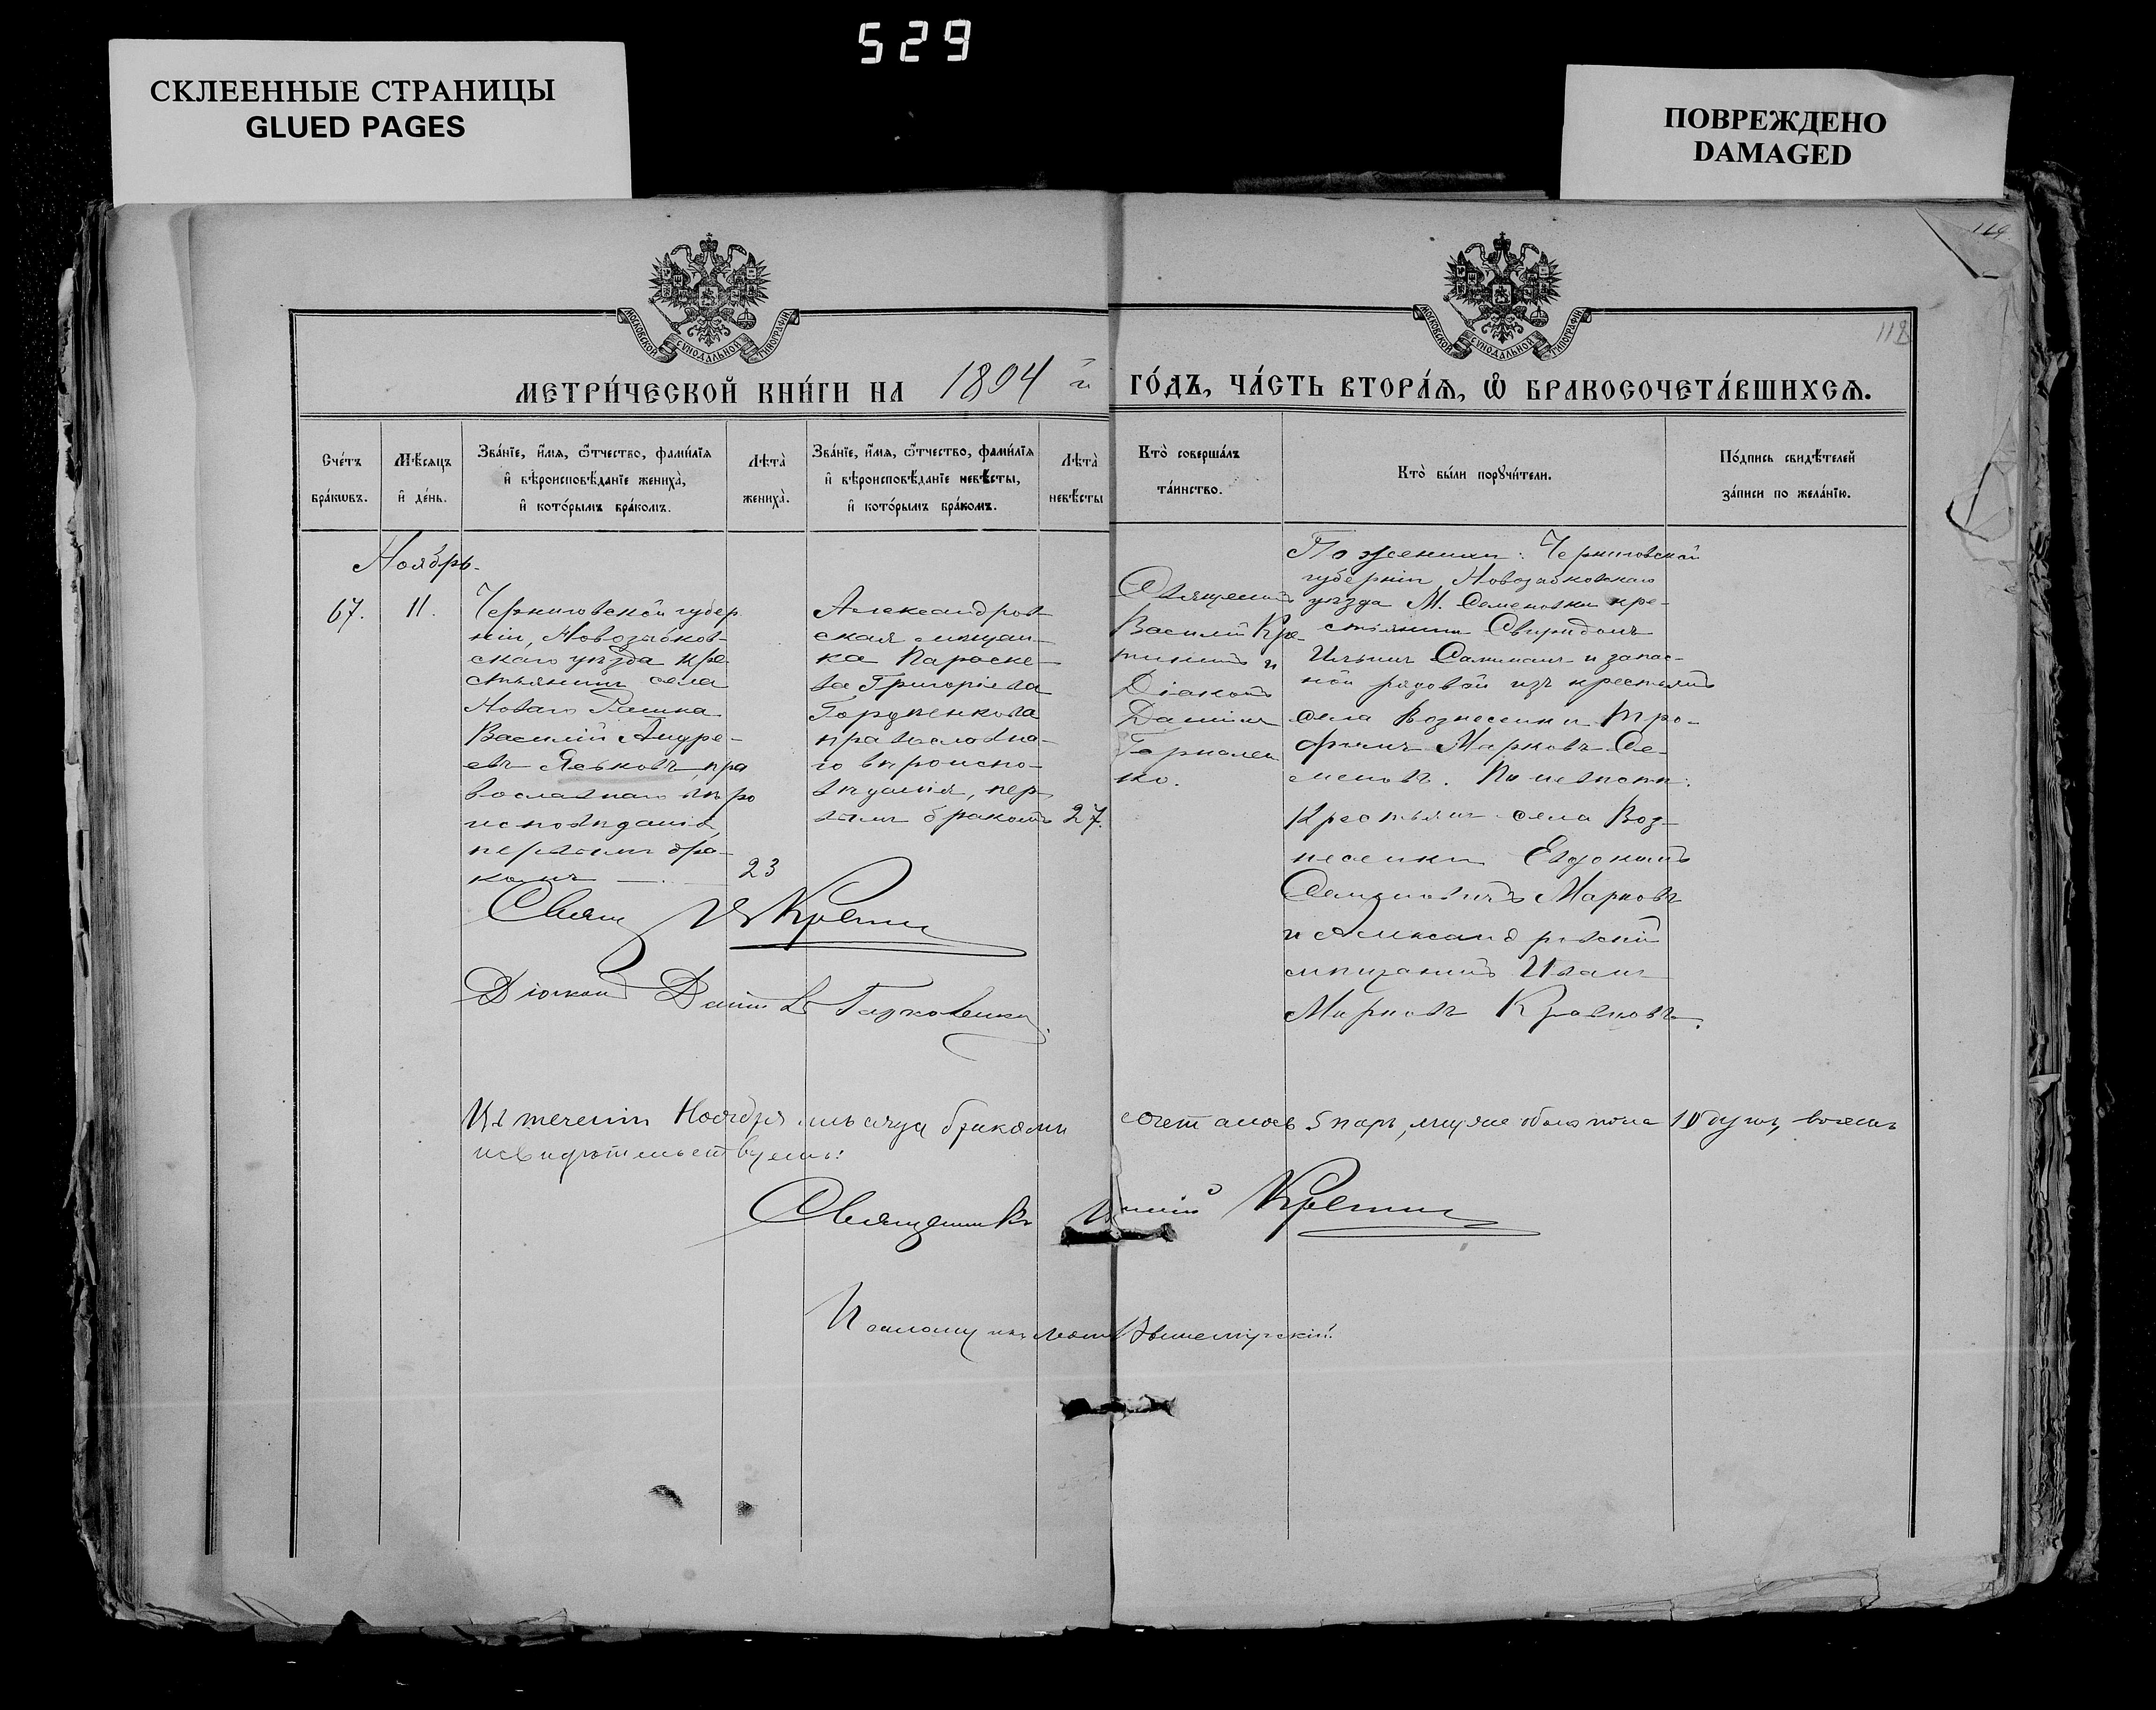 529
СКЛЕЕННЫЕ СТРАНИЦЫ
GLUED PAGES
ПОВРЕЖДЕНО
DAMAGED
118
МОСКОВСКОЙ СѴНОДАЛЬНОЙ ТИПОГРАФІИ
МОСКОВСКОЙ СѴНОДАЛЬНОЙ ТИПОГРАФІИ
МЕТРИ́ЧЕСКОЙ КНИ́ГИ НА 1894 й ГО́ДЪ, ЧА́СТЬ ВТОРА́Ѧ, Ѽ БРАКОСОЧЕТА́ВШИХСѦ.
Сче́тъ
бра́кѡвъ.
Мѣ́сяцъ
и҆ де́нь.
Зва́нїе, и҆́мѧ, ѻ҆́тчество, фами́лїѧ
и҆ вѣроисповѣ́данїе жениха̀,
и҆ кото́рымъ бра́комъ.
Лѣта̀
жениха̀.
Зва́нїе, и҆́мѧ, ѻ҆́тчество, фами́лїѧ
и҆ вѣроисповѣ́данїе невѣ́сты,
и҆ кото́рымъ бра́комъ.
Лѣта̀
невѣ́сты
Кто̀ соверша́лъ
та́инство.
Кто̀ бы́ли порꙋчи́тели.
По́дпись свидѣ́телей
за́писи по жела́нїю.
Ноябрь.
67.
11.
Черниговской губер
ніи, Новозыбков-
скаго уѣзда кре
стьянинъ села
Новаго
Василій Андре-
евъ Яськовъ, пра
вославнаго вѣро
исповѣданія,
первымъ бра-
комъ
23
Александров-
ская мѣщан-
ка Параске-
ва Григоріева
православна-
го вѣроиспо-
вѣданія, пер-
вымъ бракомъ
27.
Священникъ
Василій Кре-
и
Діаконъ
Даніилъ
ко.
По женихѣ: Черниговской
губерніи, Новозыбковскаго
уѣзда М. Семеновки кре-
стьянинъ Свиридонъ
Ильинъ и запас-
ной рядовой изъ крестьянъ
села Вознесенки Тро-
фимъ Марковъ Се-
меновъ. По невѣстѣ:
Крестьян. села Воз-
несенки Евдокимъ
Семеновичъ Марковъ
и Александровскій
мѣщанинъ Иванъ
Марковъ
Свящ В Крет
Діаконъ Даніилъ
Въ теченіи Ноября мѣсяца браками сочеталось 5 паръ, лицъ обоего пола 10 душъ, въ чемъ
и свидѣтельствуемъ:
Священникъ Василій